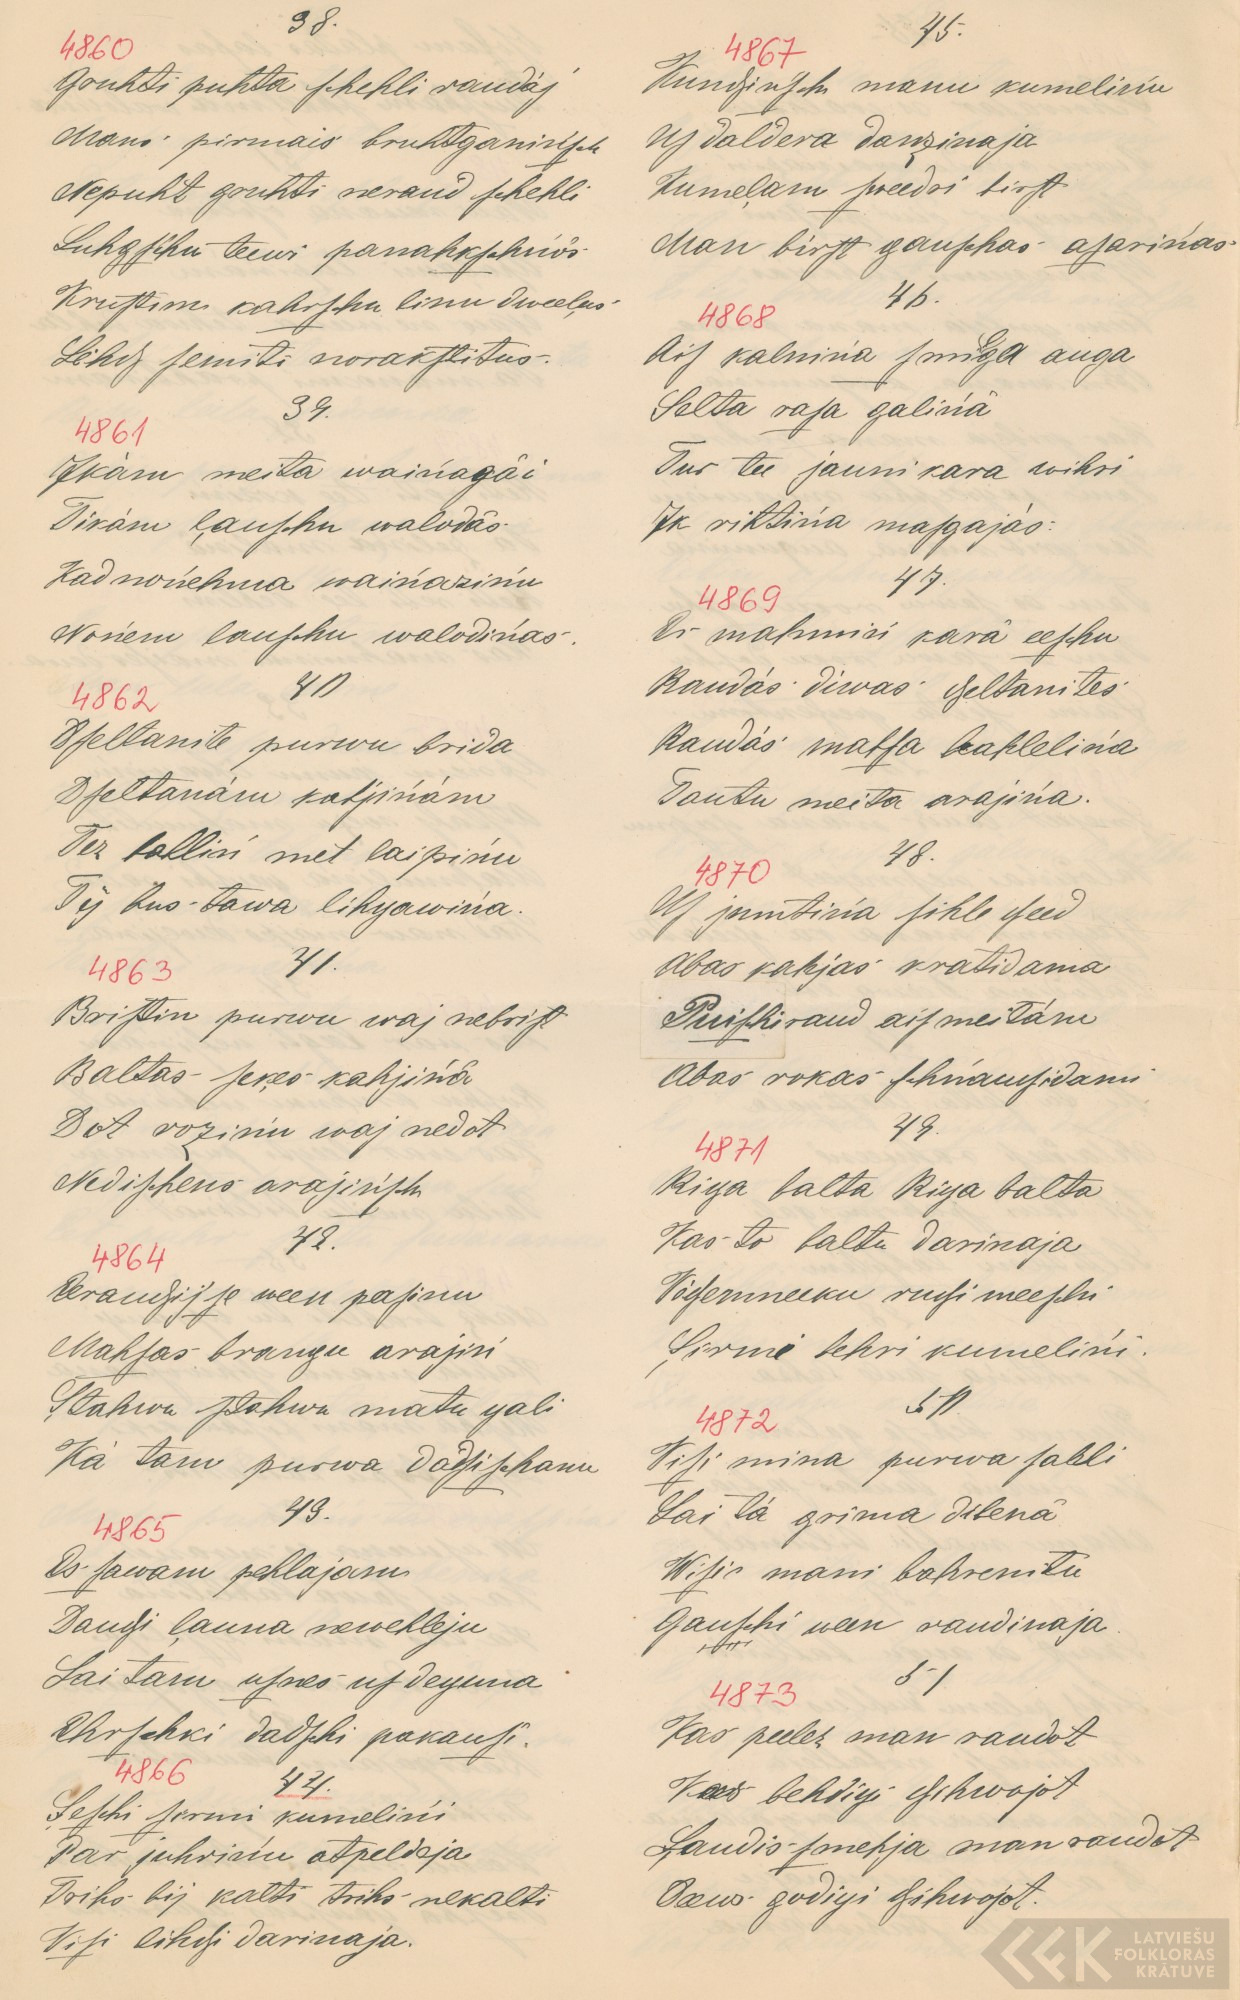 38.
4860
Gruhti puhta schehli raudaj
Mans pirmais bruhtganinsch
Nepuht gruhti neraud schehli
Luhgschu teewi panahkschnôs
Krustim kahrschu linu dweeļus
Lihds semiti norakstitus.
39.
4861
Ikàm meita wainagâi
Tikàm ļauschu walodâs
Kad noņehma wainaziņu
Noņem lauschu walodiņas.
40
4862
Dseltanite purwu brida
Dseltanám kahjiņám
Tez balliņ met laipiņu
Tij bus tawa lihgawiņa.
41.
4863
Bristin purwu waj nebrist
Baltas seķes kahjiņâ
Dot roziņu waj nedot
Nedischens arajinsch
42.
4864
Eeraudsijse ween pasinu
Mahsas brangu arajiņ
Stahwu stahwu matu gali
Kà tam purwa dadsischam
43.
4865
Es sawam pehlajam
Daudsi ļauna newehleju
Lai tam usnes us deguna
Ehrschki dadschi pakausi.
44.
4866
Seschi sirmi kumeliņi
Par juhriņu atpeldeja
Trihs bij kalti trihs nekalti
Visi lihdsi darinaja.
45.
4867
Kundsinsch manu kumeliņu
Us daldera danzinaja
Kumeļam sweedri birst
Man birst gauschas asariņas
46.
4868
Ais kalniņa smilga auga
Selta rasa galiņâ
Tur tee jauni kara wihri
Ik rihtiņa masgajás.
47.
4869
Es mahmiņ karâ eeschu
Raudás diwas dseltanites
Raudás mahsa bahleliņa
Tautu meita arajiņa.
48.
4870
Us jumtiņa sihle dseed
Abas kahjas kratidama
Puischi raud ais meitám
Abas rokas schņausidami
49.
4871
Riga balta Riga balta
Kas to baltu darinaja
Vidsemneeku rudsi meeschi
Sirmi behri kumeliņi.
50
4872
Visi mina purwa sahli
Lai tá grima dibenâ
Wisi mani bahrenitu
Gauschi ween raudinaja
51
4873
Kas peelez man raudot
Kas behdigi dsihwojot
Ļaudis smehja man raudot
Deews godigi dsihwojot.
LATVIEŠU
FOLKLORAS
KRĀTUVE